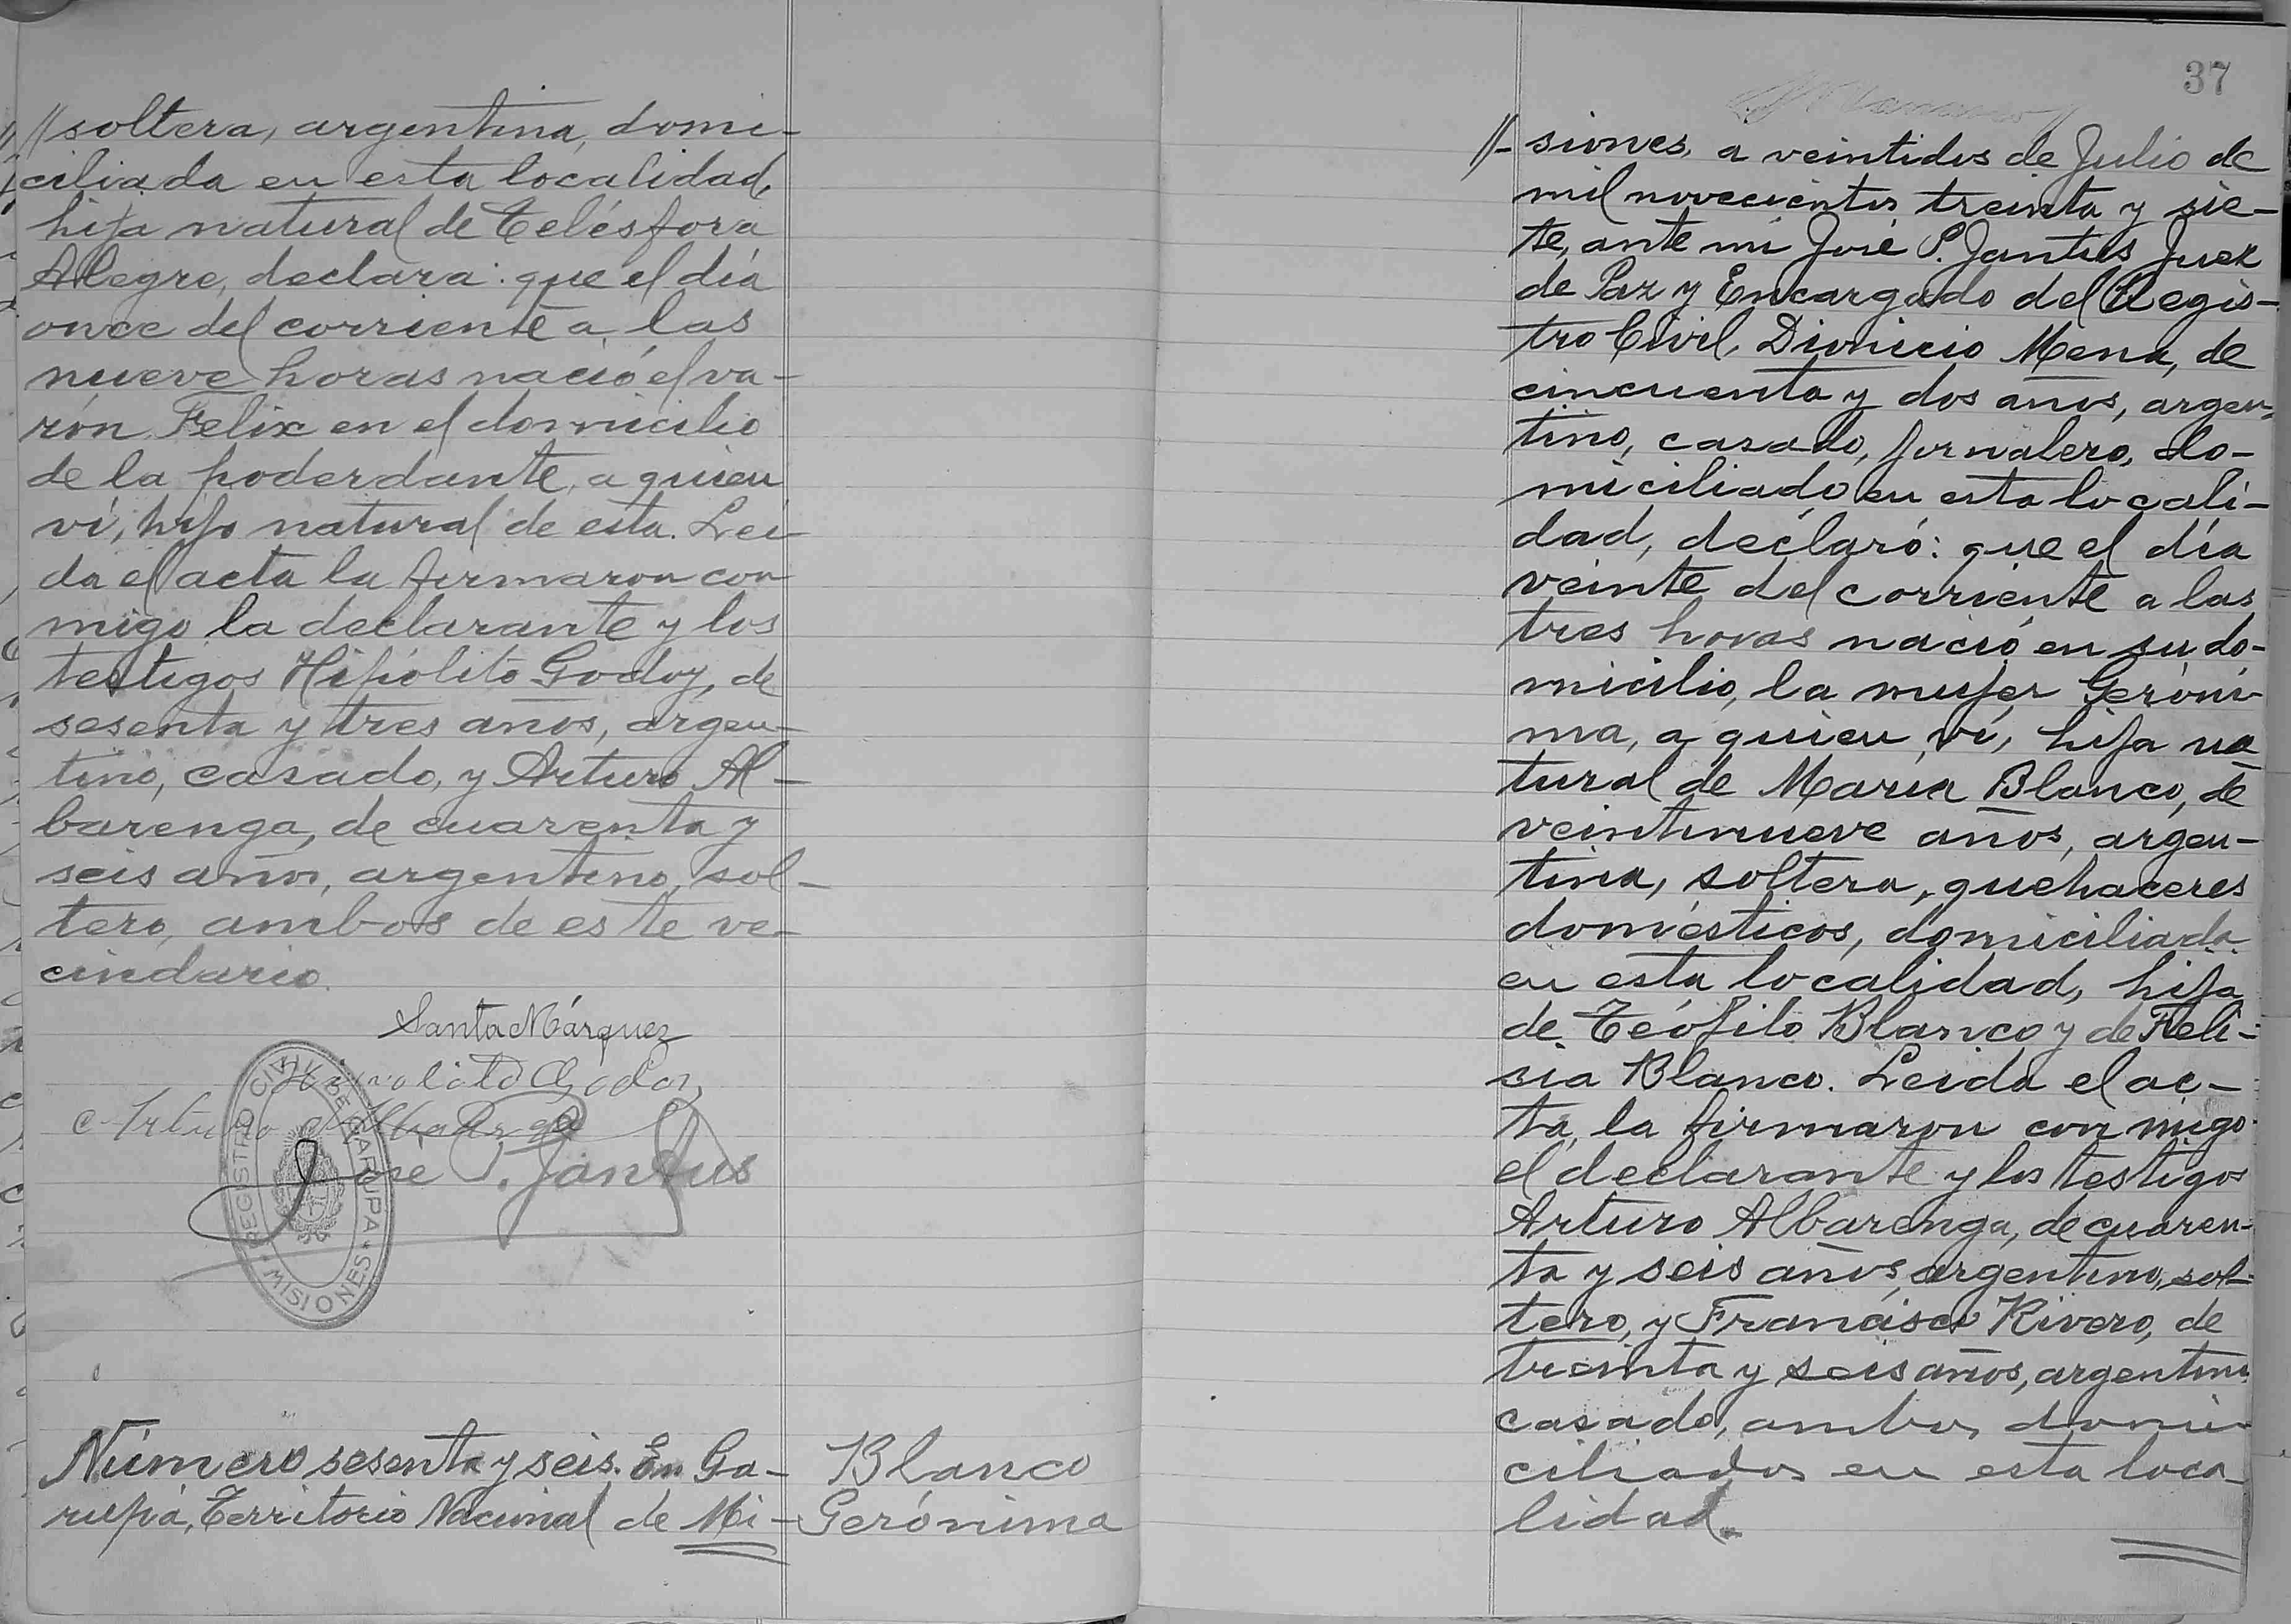 // soltera, argentina, domi-
ciliada en esta localidad,
hija natural de Telésfora
Alegre, declara: que el día
once del corriente a las
nueve horas nació el va-
rón Felix en el domicilio
de la poderdante, a quien
ví, hijo natural de esta. Lei-
da el acta la firmaron con
migo la declarante y los
testigos Hipólito Godoy, de
sesenta y tres años, argen-
tino, casado, y Arturo Al-
barenga, de cuarenta y
seis años, argentino, sol-
tero, ambos de este ve-
cindario.
Santa Márquez
Hipolito Godoy
Arturo Albarenga
Jose P. Jantus
REGISTRO CIVIL DE GARUPA
MISIONES
Número sesenta y seis. En Ga-
rupá, Territorio Nacional de Mi-
Blanco
Gerónima
37
//- siones, a veintidos de Julio de
mil novecientos treinta y sie-
te, ante mi José P. Jantus Juez
de Paz y Encargado del Regis-
tro Civil, Dionicio Mena, de
cincuenta y dos años, argen-
tino, casado, jornalero, do-
miciliado en esta locali-
dad, declaró: que el día
veinte del corriente a las
tres horas nació en su do-
micilio, la mujer Geróni-
ma, a quien ví, hija na
tural de María Blanco, de
veintinueve años, argen-
tina, soltera, quehaceres
domésticos, domiciliada
en esta localidad, hija
de Teófilo Blanco y de Feli-
sia Blanco. Leida el ac-
ta, la firmaron con migo
el declarante y los testigos
Arturo Albarenga, de cuaren-
ta y seis años, argentino, sol-
tero, y Francisco Rivero, de
treinta y seis años, argentino
casado, ambos domi-
ciliados en esta loca-
lidad.